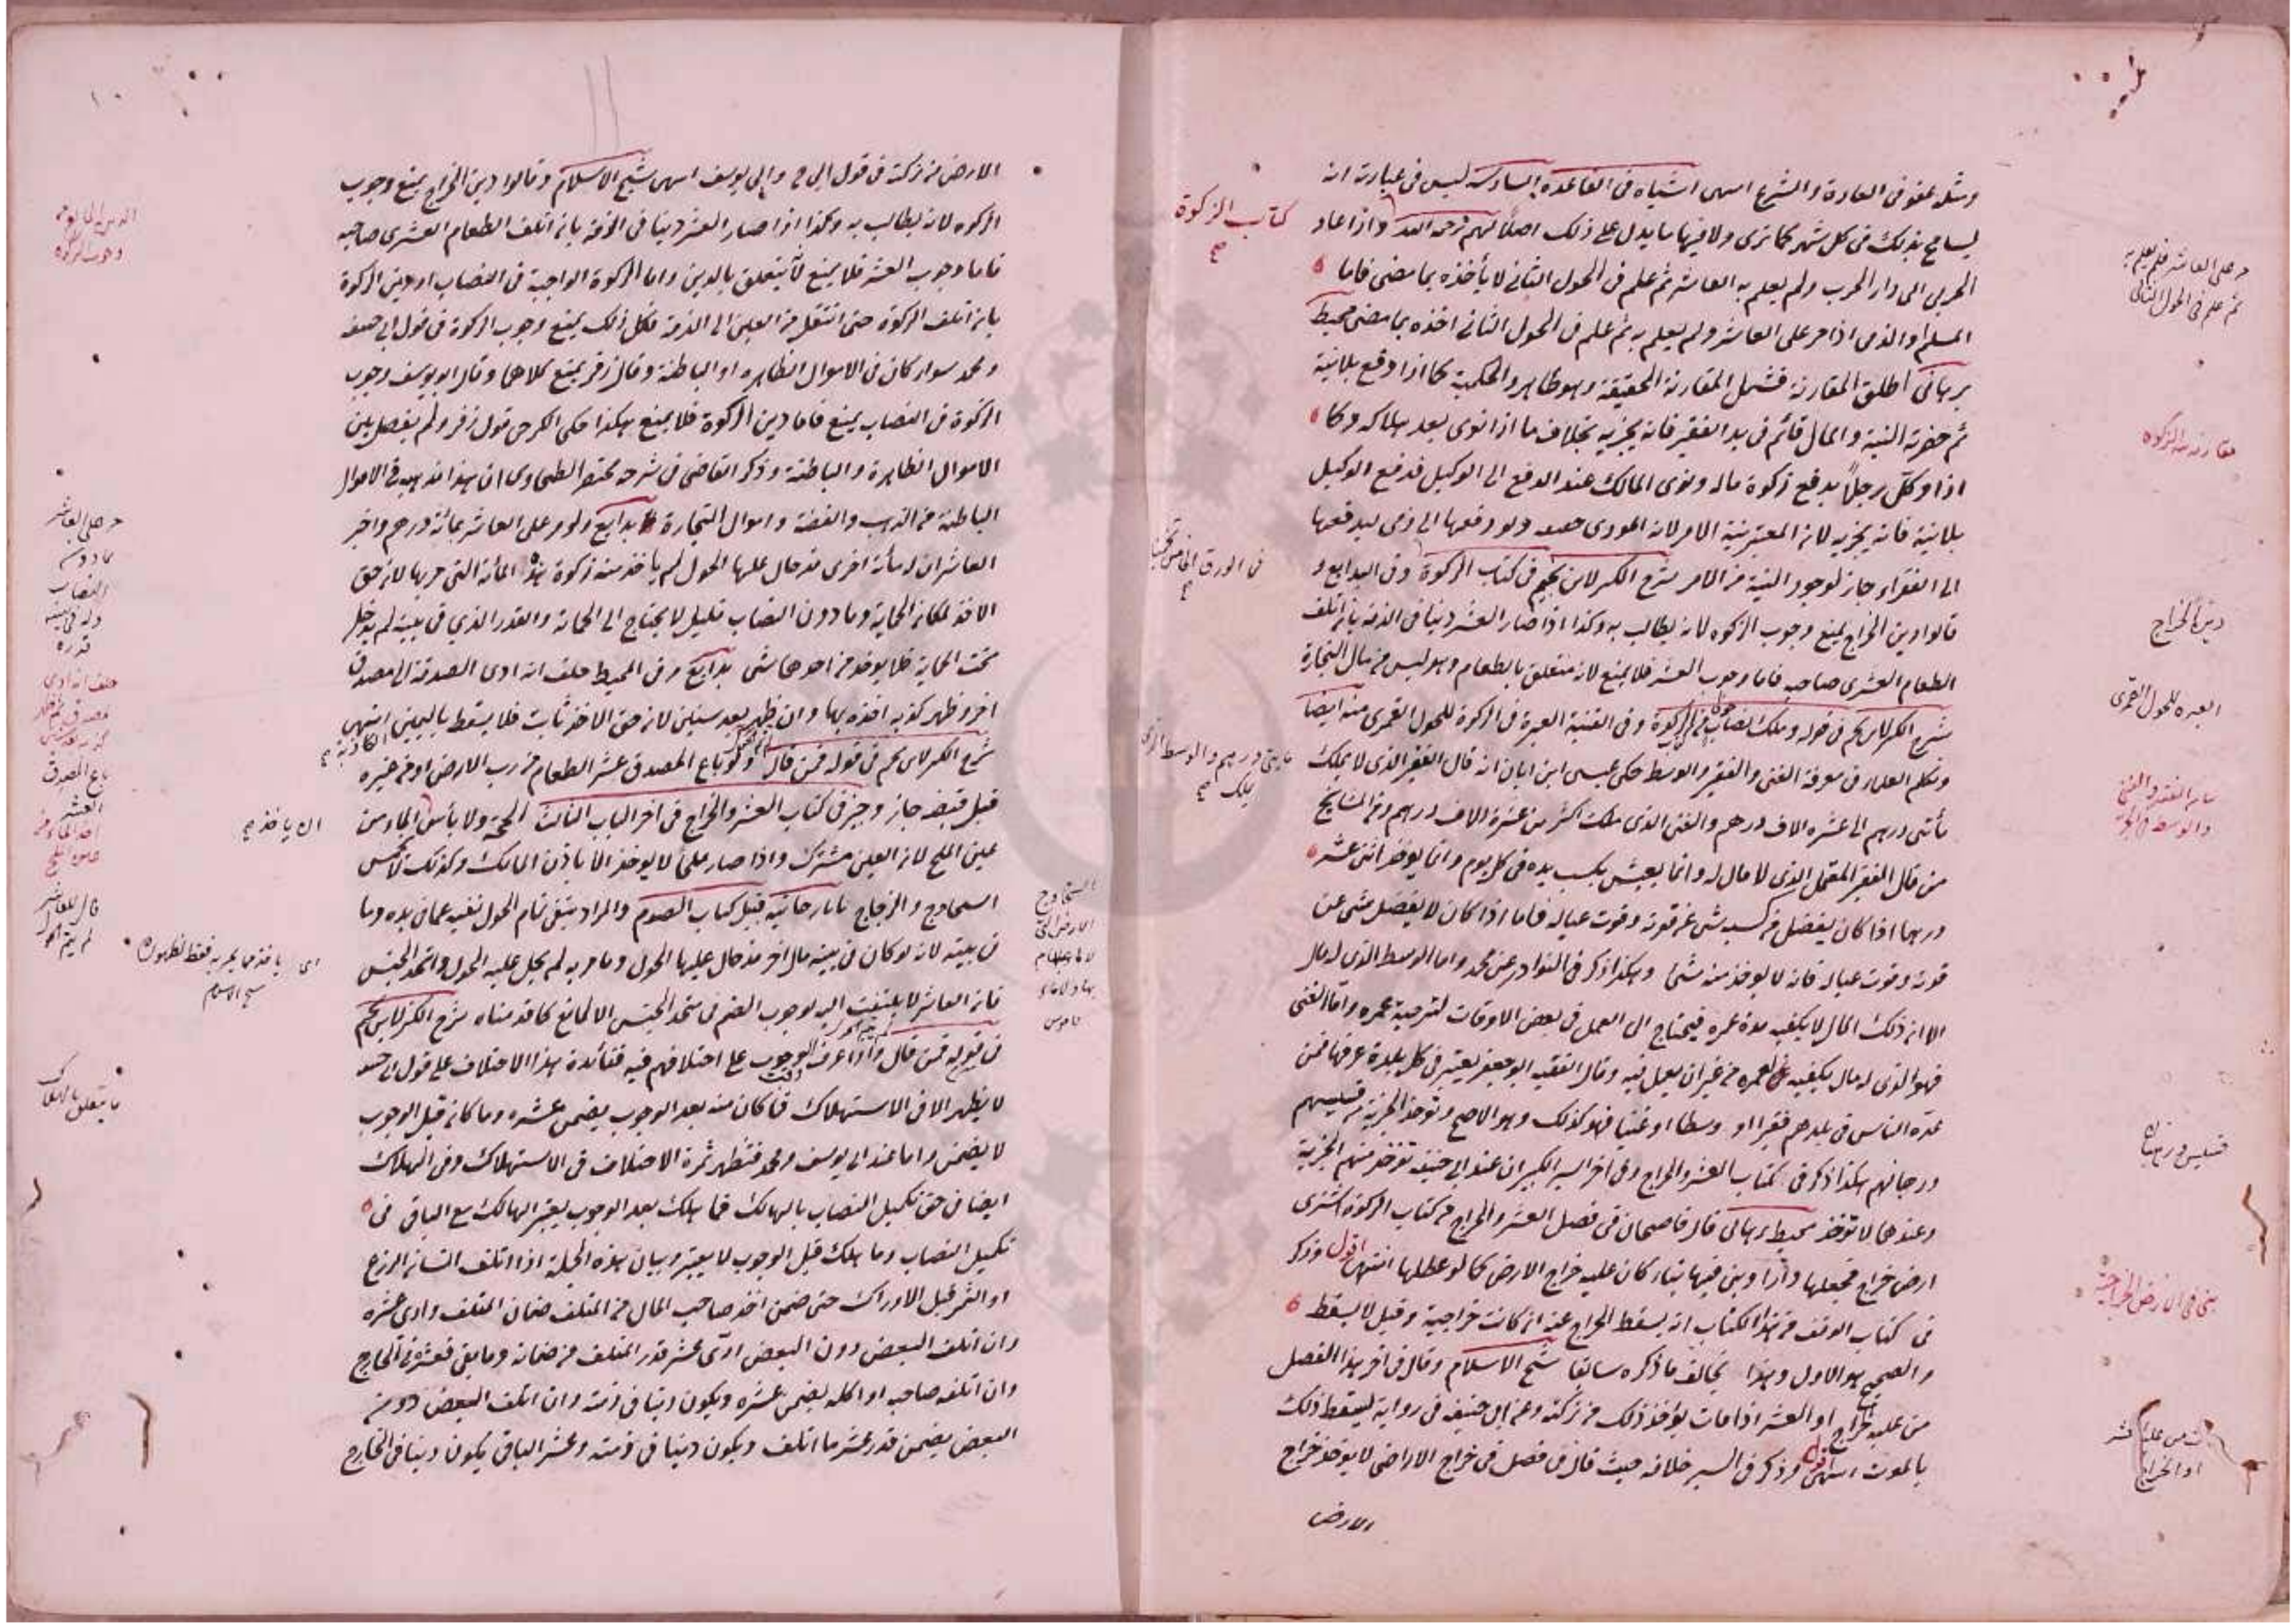 ومثله عفو فى العادة والشرع انتهى اشباه فى القاعدة السادسة ليس فى عبارته انه
يسامح بذلك فى كل شهر كما ترى ولا فيها ما يدل على ذلك اصلا واذا عاد
الحربى الى دار الحرب ولم يعلم به العاشر ثم علم فى الحول الثانى لا يأخذه بما مضى فاما
المسلم والذمى اذا مر على العاشر ولم يعلم به ثم علم فى الحول الثانى اخذه بما مضى محيط
برهانى اطلق المقارنة فشمل المقارنة الحقيقة وهو ظاهر والحكمية كما اذا دفع بلا نية
ثم حضرته النية والمال قائم فى يد الفقير فانه يجزيه بخلاف ما اذا نوى بعد هلاكه وكما
اذا وكل رجلا بدفع زكوة ماله ونوى المالك عند الدفع الى الوكيل فدفع الوكيل
بلا نية فانه يجزيه لان المعتبر نية الامر لانه المودى حقيقة ولو دفعها الى ذمى ليدفعها
الى الفقراء جاز لوجود النية من الامر شرح الكنز لابن نجيم فى كتاب الزكوة وفى البدايع و
قالوا دين الخراج يمنع وجوب الزكوه لانه يطالب به وكذا اذا صار العشر دينا فى الذمة بان اتلف
الطعام العشرى صاحبه فاما وجوب العشر فلا يمنع لانه متعلق بالطعام وهو ليس من مال التجارة
شرح الكنز لابن نجيم فى قوله وملك نصاب وفى القنية العبرة فى الزكوة للحول القمرى منه ايضا
وتكلم العلماء فى معرفة الغنى والفقير والوسط حكى عيسى ابن ابان انه قال الفقير الذى لا يملك
مأتى درهم الى عشره الاف درهم والغنى الذى ملك اكثر من عشرة الاف درهم ومن المشايخ
من قال الفقير المعتمل الذى لا مال له وانما يعيش بكسب يده فى كل يوم وانما يوخذ اثنى عشر
درهما اذا كان يفضل من كسبه شى عن قوته وقوت عياله فاما اذا كان لا يفضل شى عن
قوته وقوت عياله فانه لا يوخذ منه شى وهكذا ذكر فى النوادر عن محمد واما الوسط الذى له مال
الا ان ذلك المال لا يكفيه مدة عمره فيحتاج الى العمل فى بعض الاوقات لتزجية عمره واما الغنى
فهو الذى له مال يكفيه لعمره من غير ان يعمل فيه وقال الفقيه ابو جعفر يعتبر فى كل بلدة عرفها فمن
عده الناس فى بلدهم فقيرا او وسطا او غنيا فهو كذلك وهو الاصح وتوخذ الجزية من قسيسهم
ورهبانهم هكذا ذكر فى كتاب العشر والخراج وفى اخر السير الكبير ان عند ابى حنيفة توخذ منهم الجزية
وعندهما لا توخذ محيط برهانى قال قاضيخان فى فصل العشر والخراج من كتاب الزكوة اشترى
ارض خراج فجعلها دارا وبنى فيها بناء كان عليه خراج الارض كما لو عطلها انتهى اقول وذكر
فى كتاب الوقف من هذا الكتاب انه يسقط الخراج عنه ان كانت خراجية وقيل لا يسقط
والصحيح هو الاول وهذا يخالف ما ذكره سابقا شيخ الاسلام وقال فى اخر هذا الفصل
من عليه الخراج او العشر اذا مات يؤخذ ذلك من تركته وعن ابى حنيفة فى رواية ليسقط ذلك
بالموت انتهى اقول وذكر فى السير خلافه حيث قال فى فصل فى خراج الاراضى لا يوخذ خراج
الارض
كتاب الزكوة
مر على العاشر فلم يعلم به
ثم علم فى الحول الثانى
مقارنه نية الزكوه
فى الورق الخامس
دين الخراج
العبره للحول القمرى
بيان الفقير والغنى
والوسط فى الجزية
قسيس ورهبان
بنى فى الارض الخراجية
مات من عليه العشر
او الخراج
الارض من تركته فى قول ابى ح وابى يوسف انتهى شيخ الاسلام وقالوا دين الخراج يمنع وجوب
الزكوه لانه يطالب به وكذا اذا صار العشر دينا فى الذمة بان اتلف الطعام العشرى صاحبه
فاما وجوب العشر فلا يمنع لانه متعلق بالدين واما الزكوة الواجبة فى النصاب او دين الزكوة
بان اتلف الزكوة حتى انتقل من العين الى الذمة فكل ذلك يمنع وجوب الزكوة فى قول ابى حنيفه
ومحمد سواء كان فى الاموال الظاهره او الباطنة وقال زفر يمنع كلاهما وقال ابو يوسف وجوب
الزكوة فى النصاب يمنع فاما دين الزكوة فلا يمنع هكذا حكى الكرخى قول زفر ولم يفصل بين
الاموال الظاهرة والباطنة وذكر القاضى فى شرحه مختصر الطحاوى ان هذا مذهبه فى الاموال
الباطنة من الذهب والفضة واموال التجارة بدايع ولو مر على العاشر بمائة درهم واخبر
العاشر ان له مأئة اخرى قد حال عليها الحول لم ياخذ منه زكوة هذه المائة التى مر بها لان حق
الاخذ لمكان الحماية وما دون النصاب قليل لا يحتاج الى الحماية والقدر الذي فى بيته لم يدخل
تحت الحماية فلا يوخذ من احدهما شى بدايع وفى المحيط حلف انه ادى الصدقة الى مصدق
اخر وظهر كذبه اخذه بها وان ظهر بعد سنين لان حق الاخذ ثابت فلا يسقط باليمين الكاذبة انتهى
شرح الكنز لابن نجيم فى قوله فمن قال ولو باع المصدق عشر الطعام من رب الارض او من غيره
قبل قبضه جاز وجيز فى كتاب العشر والخراج فى اخر الباب الثالث ولا بأس الماء من
عين الملح لان العين مشترك واذا صار ملحا لا يوخذ الا باذن المالك وكذلك
والزجاج تاتارخانية قبيل كتاب الصوم والمراد بنفى تمام الحول نفيه عما فى يده وما
فى بيته لانه لو كان فى بيته مال اخر قد حال عليها الحول وما مر به لم يحل عليه الحول واتحد الجنس
فان العاشر لا يلتفت اليه لوجوب الضم فى متحد الجنس الا لمانع كما قدمناه شرح الكنز لابن نجيم
فى قوله فمن قال واذا عرف وقت الوجوب على اختلافهم فيه ففائدة هذا الاختلاف على قول ابى حنيفه
لا يظهر الا فى الاستهلاك فما كان منه بعد الوجوب يضمن عشره وما كان قبل الوجوب
لا يضمن واما عند ابى يوسف ومحمد فتظهر ثمرة الاختلاف فى الاستهلاك وفى الهلاك
ايضا فى حق تكميل النصاب بالهالك فما هلك بعد الوجوب يعتبر الهالك مع الباقى فى
تكميل النصاب وما هلك قبل الوجوب لا يعتبر وبيان هذه الجملة اذا اتلف انسان الزرع
او الثمر قبل الادراك حتى ضمن اخذ صاحب المال من المتلف ضمان المتلف وادى عشره
وان اتلف البعض دون البعض ادى عشر قدر المتلف من ضمانه وما بقى فعشره فى الخارج
وان اتلفه صاحبه او اكله يضمن عشره ويكون دينا فى ذمته وان اتلف البعض دون
البعض يضمن قدر عشر ما اتلف ويكون دينا فى ذمته وعشر الباقى يكون دينا فى الخارج
الدين المانع من
وجوب الزكوة
مر على العاشر
بما دون
النصاب
وله فى بيته
قدره
حلف انه ادى
باع المصدق
العشر
اخذ الماء من
عين الملح
ان ياخذ
قال للعاشر
لم يتم الحول
قاموس
ما يتعلق بالهلاك